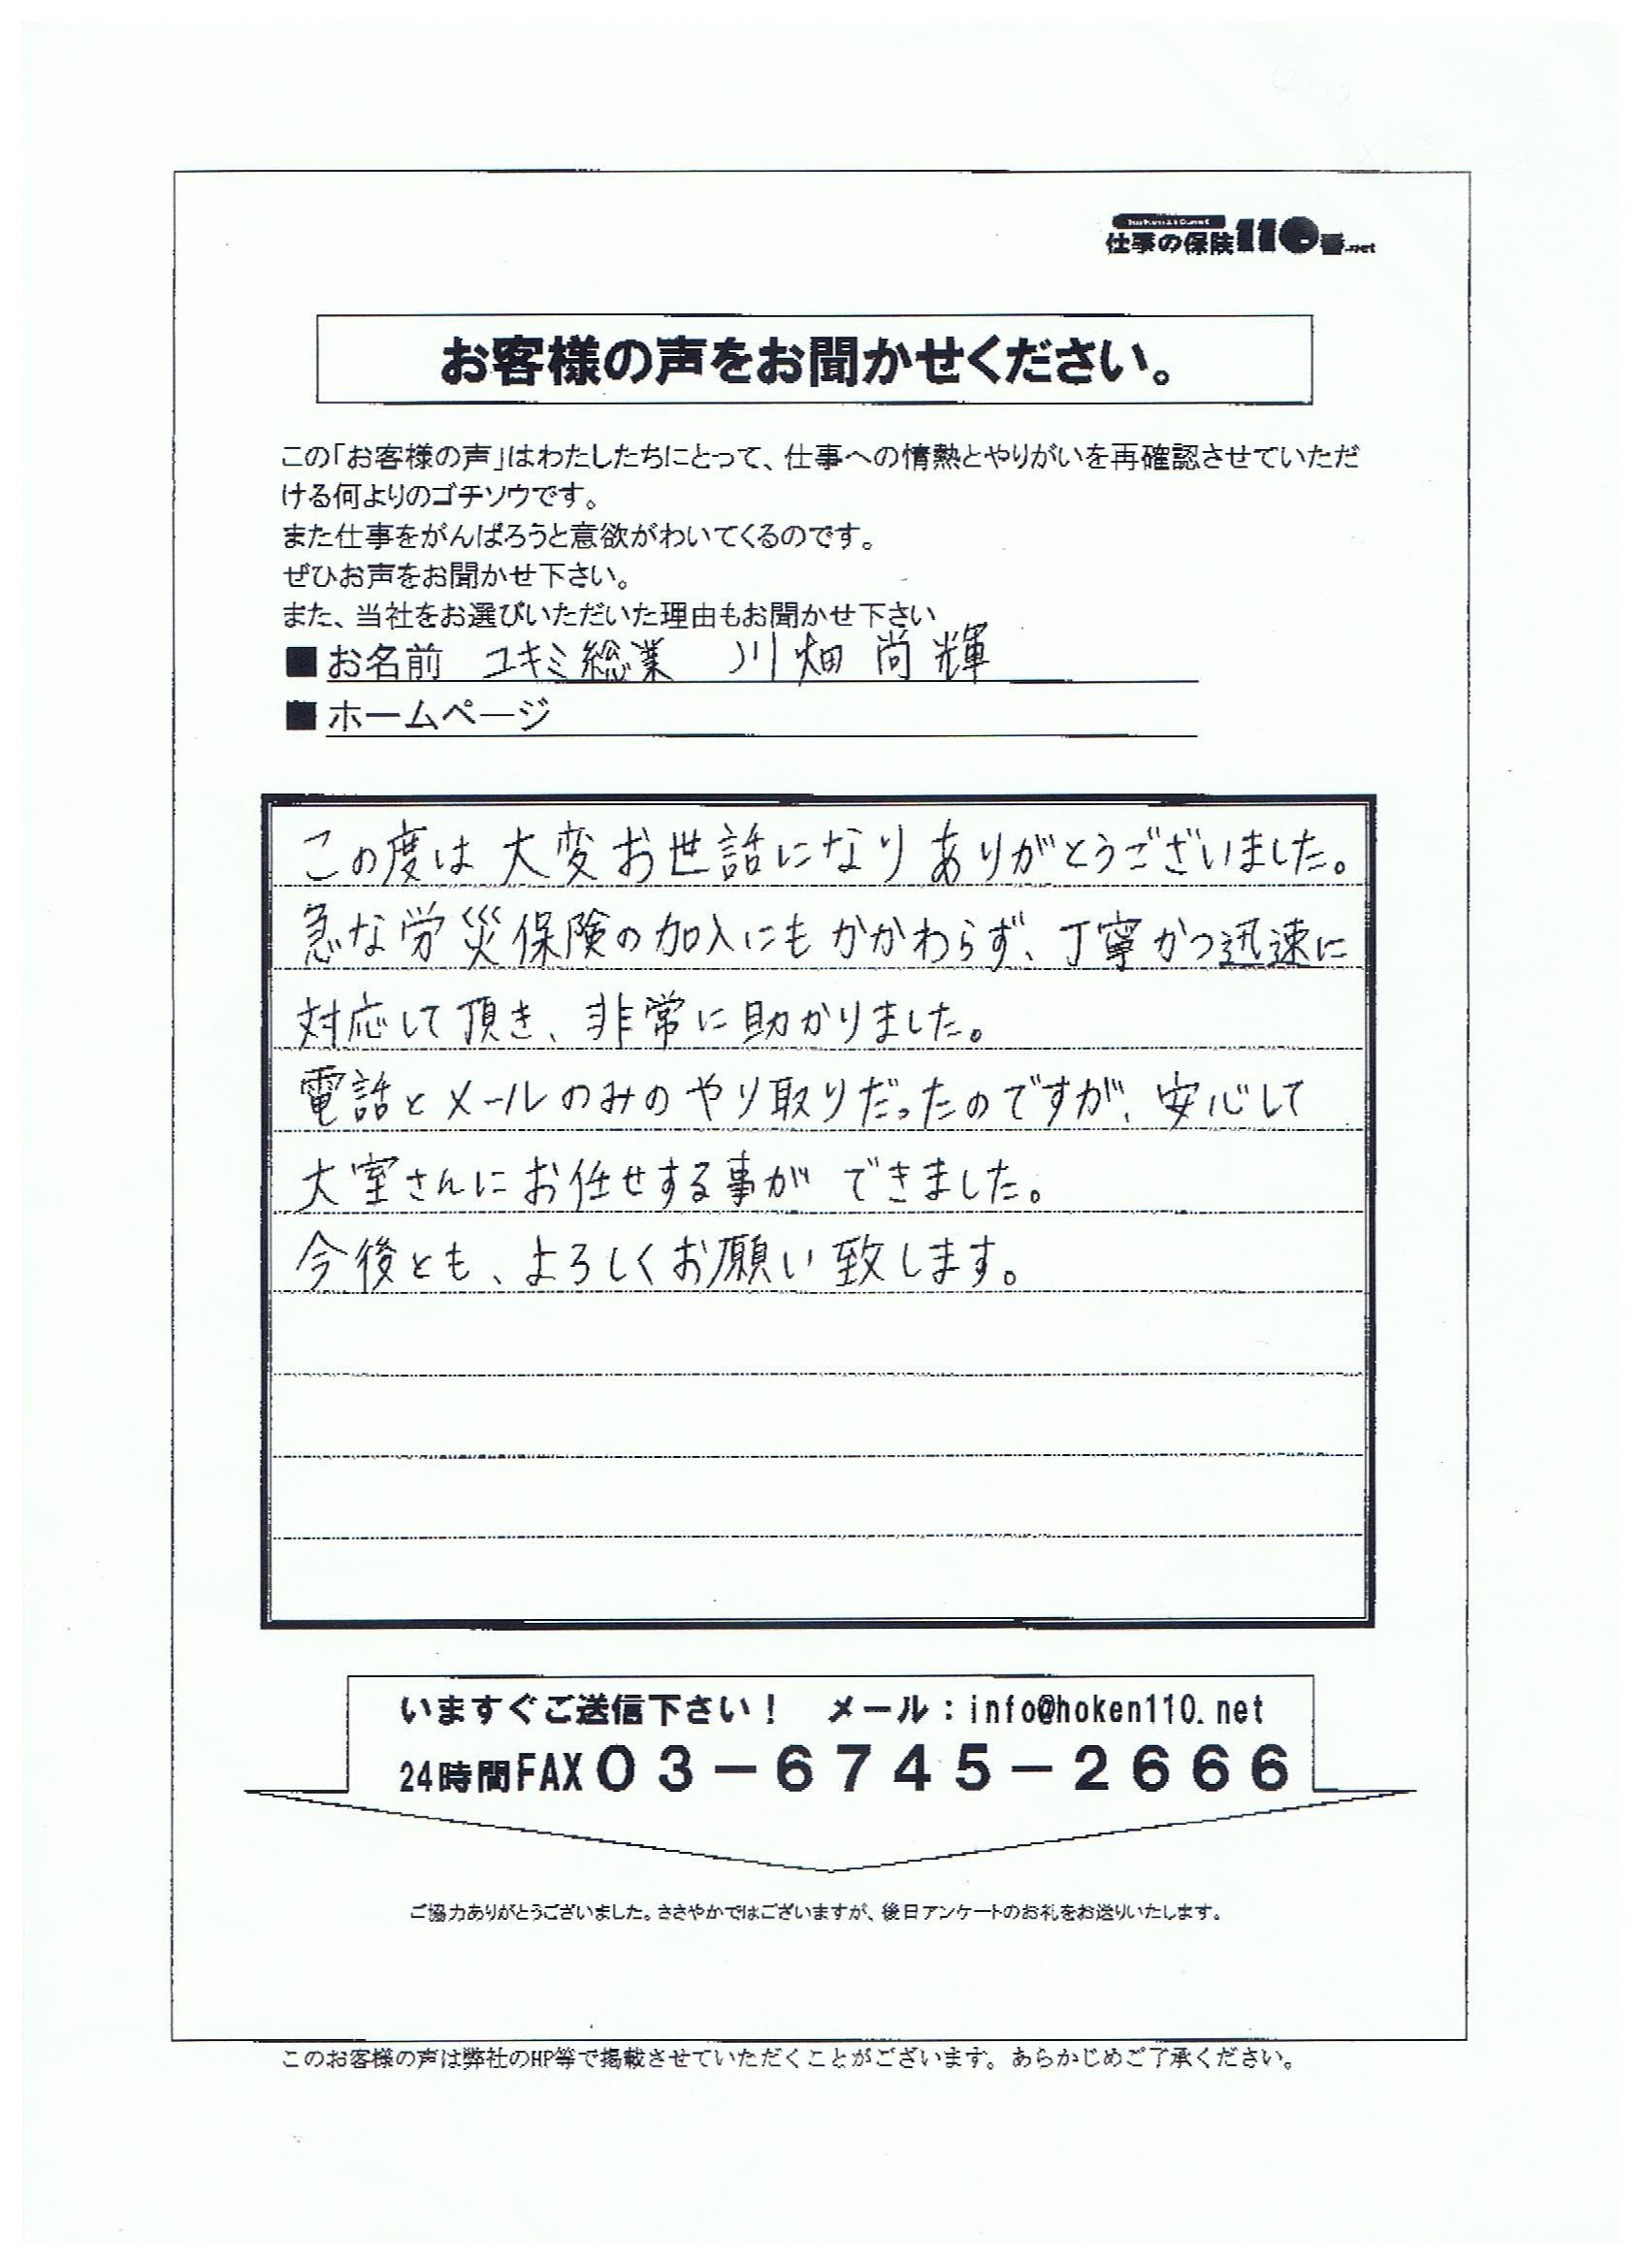 仕事の保険110番.net
お客様の声をお聞かせください。
この「お客様の声」はわたしたちにとって、仕事への情熱とやりがいを再確認させていただ
ける何よりのゴチソウです。
また仕事をがんばろうと意欲がわいてくるのです。
ぜひお声をお聞かせ下さい。
また、当社をお選びいただいた理由もお聞かせ下さい
■お名前 ユキミ総業 川畑尚輝
■ホームページ
この度は大変お世話になりありがとうございました。
急な労災保険の加入にもかかわらず、丁寧かつ迅速に
対応して頂き、非常に助かりました。
電話とメールのみのやり取りだったのですが、安心して
大室さんにお任せする事ができました。
今後とも、よろしくお願い致します。
いますぐご送信下さい! メール:info@hoken110.net
24時間FAX03-6745-2666
ご協力ありがとうございました。ささやかではございますが、後日アンケートのお礼をお送りいたします。
このお客様の声は弊社のHP等で掲載させていただくことがございます。あらかじめご了承ください。